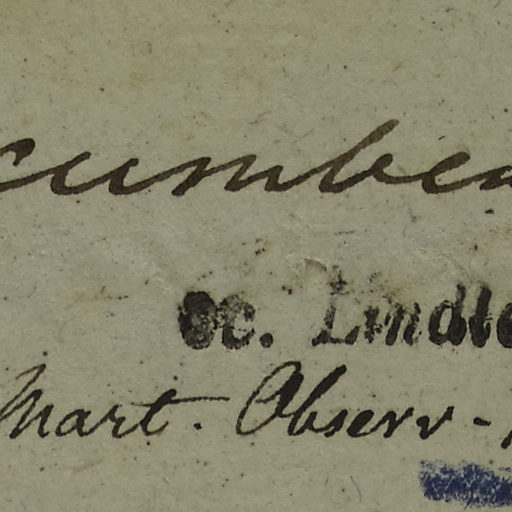 cumben
Oc. Lindle
Mart. Observ -